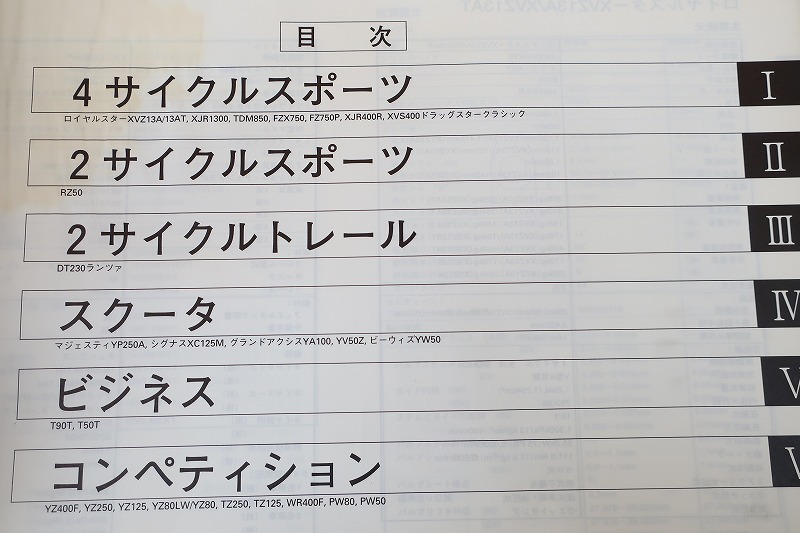 目 次
4サイクルスポーツ I
ロイヤルスターXVZ13A/13AT, XJR1300, TDM850, FZX750, FZ750P, XJR400R, XVS400ドラッグスタークラシック
2サイクルスポーツ II
RZ50
2サイクルトレール III
DT230ランツァ
スクータ IV
マジェスティYP250A, シグナスXC125M, グランドアクシスYA100, YV50Z, ビーウィズYW50
ビジネス V
T90T, T50T
コンペティション V
YZ400F, YZ250, YZ125, YZ80LW/YZ80, TZ250, TZ125, WR400F, PW80, PW50